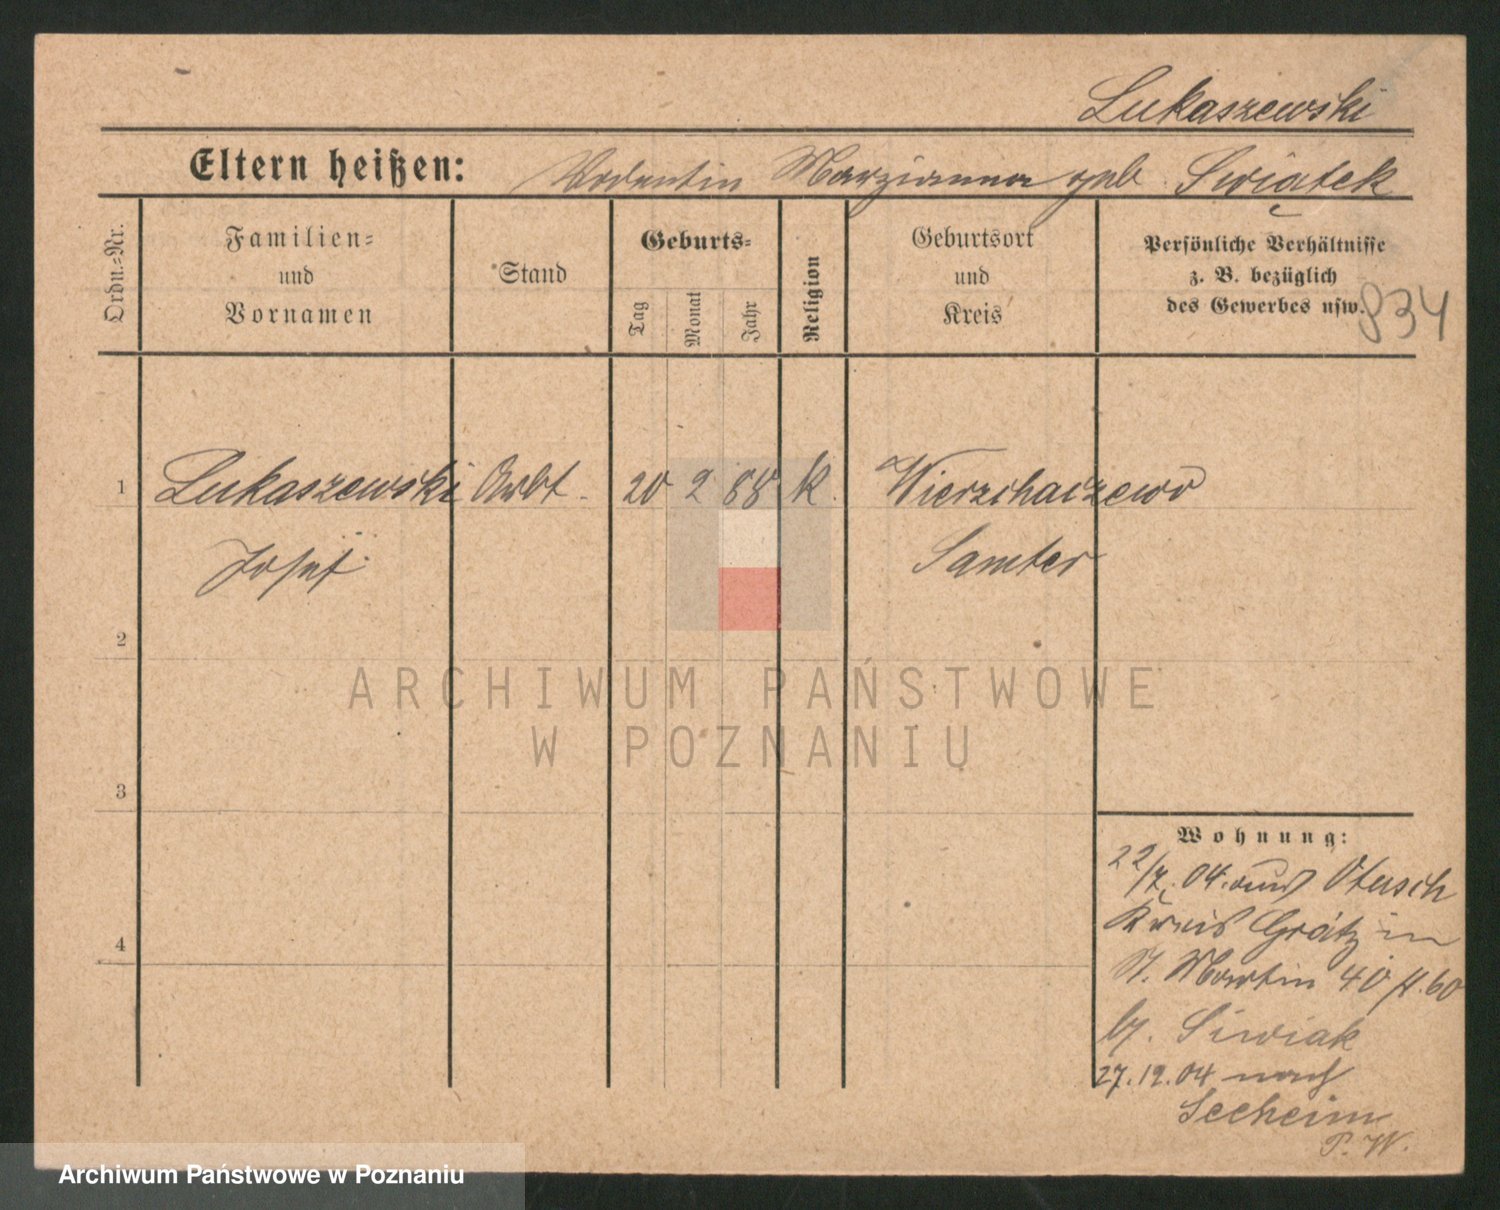 Lukaszewski
Eltern heißen: Valentin Marzianna geb. Swiątek
Ordn.-Nr.
Familien-
und
Vornamen
Stand
Geburts-
Tag
Monat
Jahr
Religion
Geburtsort
und
Kreis
Persönliche Verhältnisse
z. B. bezüglich
des Gewerbes usw.
834
1 Lukaszewski Arbt. 20 2 88 k. Wierzchaczewo
Josef Samter
2
3
4
Wohnung:
22/7. 04. aus Otusch
Kreis Grätz in
St. Martin 40 H. 60
bj. Siwiak
27.12.04 nach
Seeheim
P. W.
ARCHIWUM PAŃSTWOWE
W POZNANIU
Archiwum Państwowe w Poznaniu